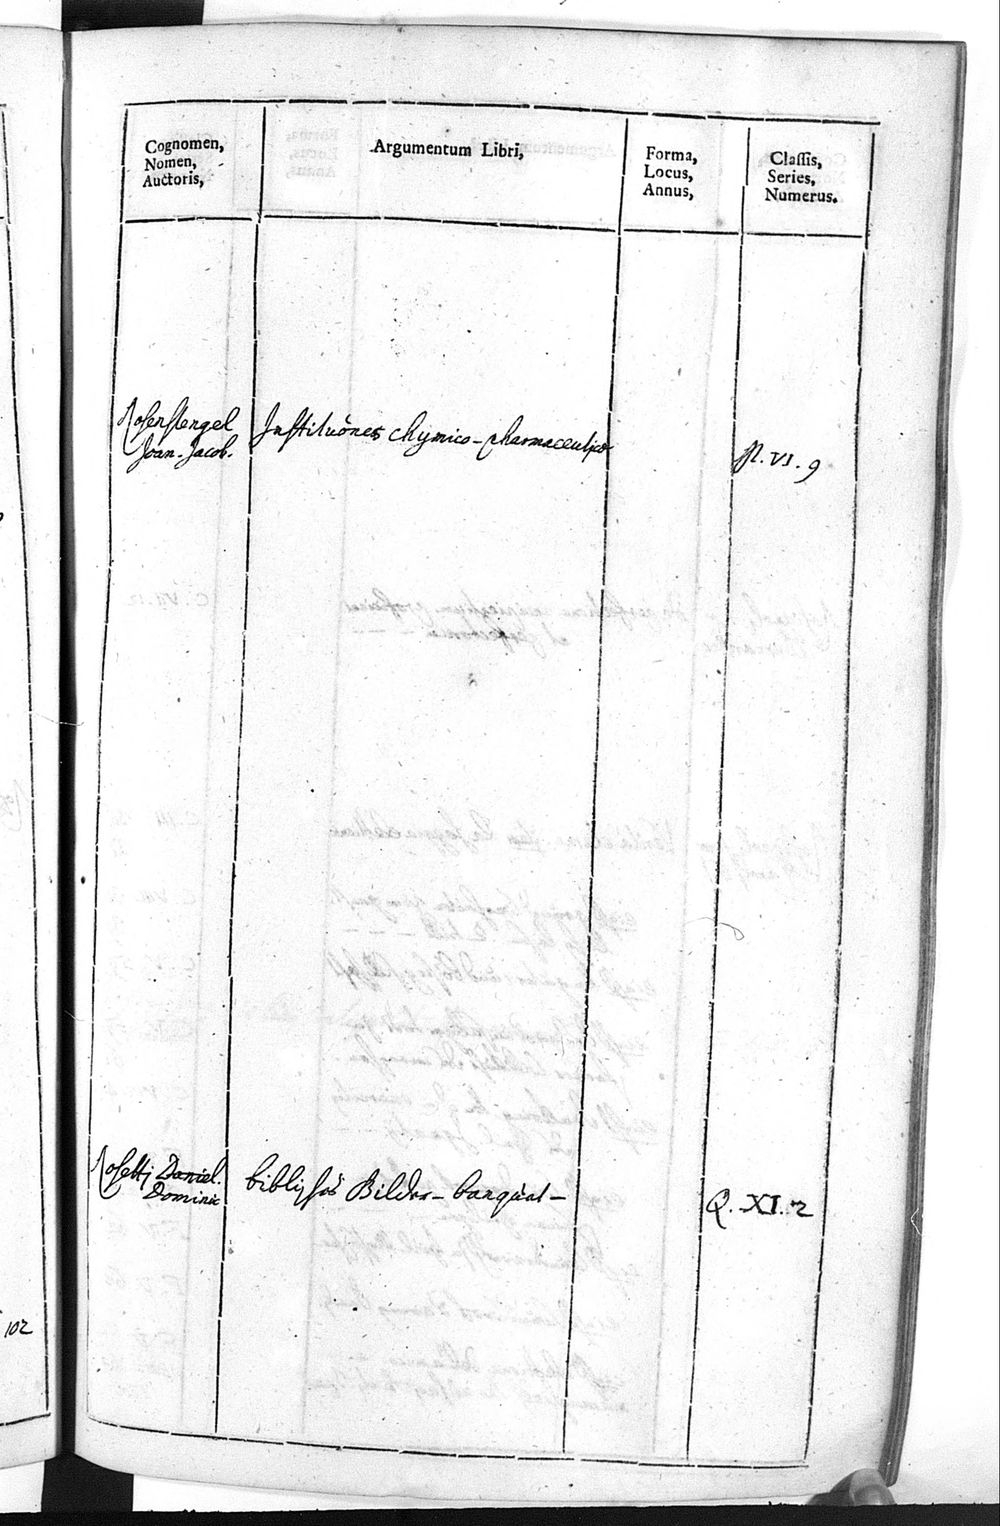 Cognomen,
Nomen,
Auctoris,
Argumentum Libri,
Forma,
Locus,
Annus,
Classis,
Series,
Numerus.
Rosenstengel
Joan. Jacob.
Institutiones chymico-pharmaceuticae
VI. 9
Rosetti Daniel.
Dominic
biblisches Bilder-banquet-
Q. XI. 2
102